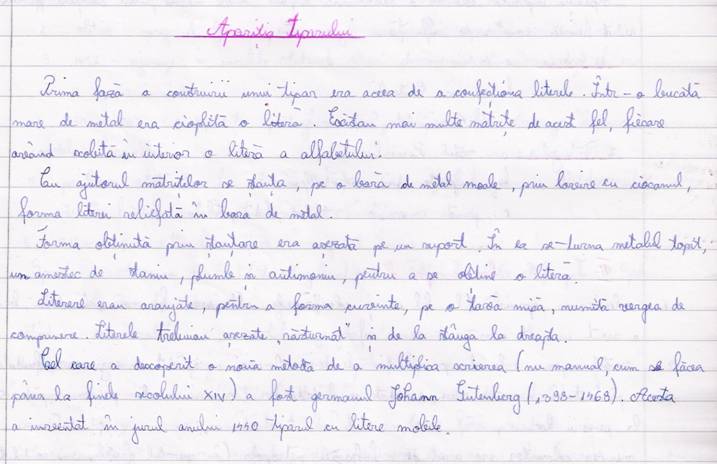 Apariția tiparului
Prima fază a construirii unui tipar era aceea de a confecționa literele. Într-o bucată
mare de metal era cioplită o literă. Existau mai multe mătrițe de acest fel, fiecare
având scobită în interior o literă a alfabetului.
Cu ajutorul mătrițelor se ștanța, pe o bară de metal moale, prin lovire cu ciocanul,
forma literei reliefată în bara de metal.
Forma obținută prin ștanțare era așezată pe un suport. În ea se turna metalul topit,
un amestec de staniu, plumb și antimoniu, pentru a se obține o literă.
Literere erau aranjate, pentru a forma cuvinte, pe o tavă mică, numită vergea de
compunere. Literele trebuiau așezate „răsturnat" și de la stânga la dreapta.
Cel care a descoperit o nouă metodă de a multiplica scrierea (nu manual, cum se făcea
până la finele secolului XIV) a fost germanul Johann Gutenberg (1398-1468). Acesta
a inventat în jurul anului 1440 tiparul cu litere mobile.